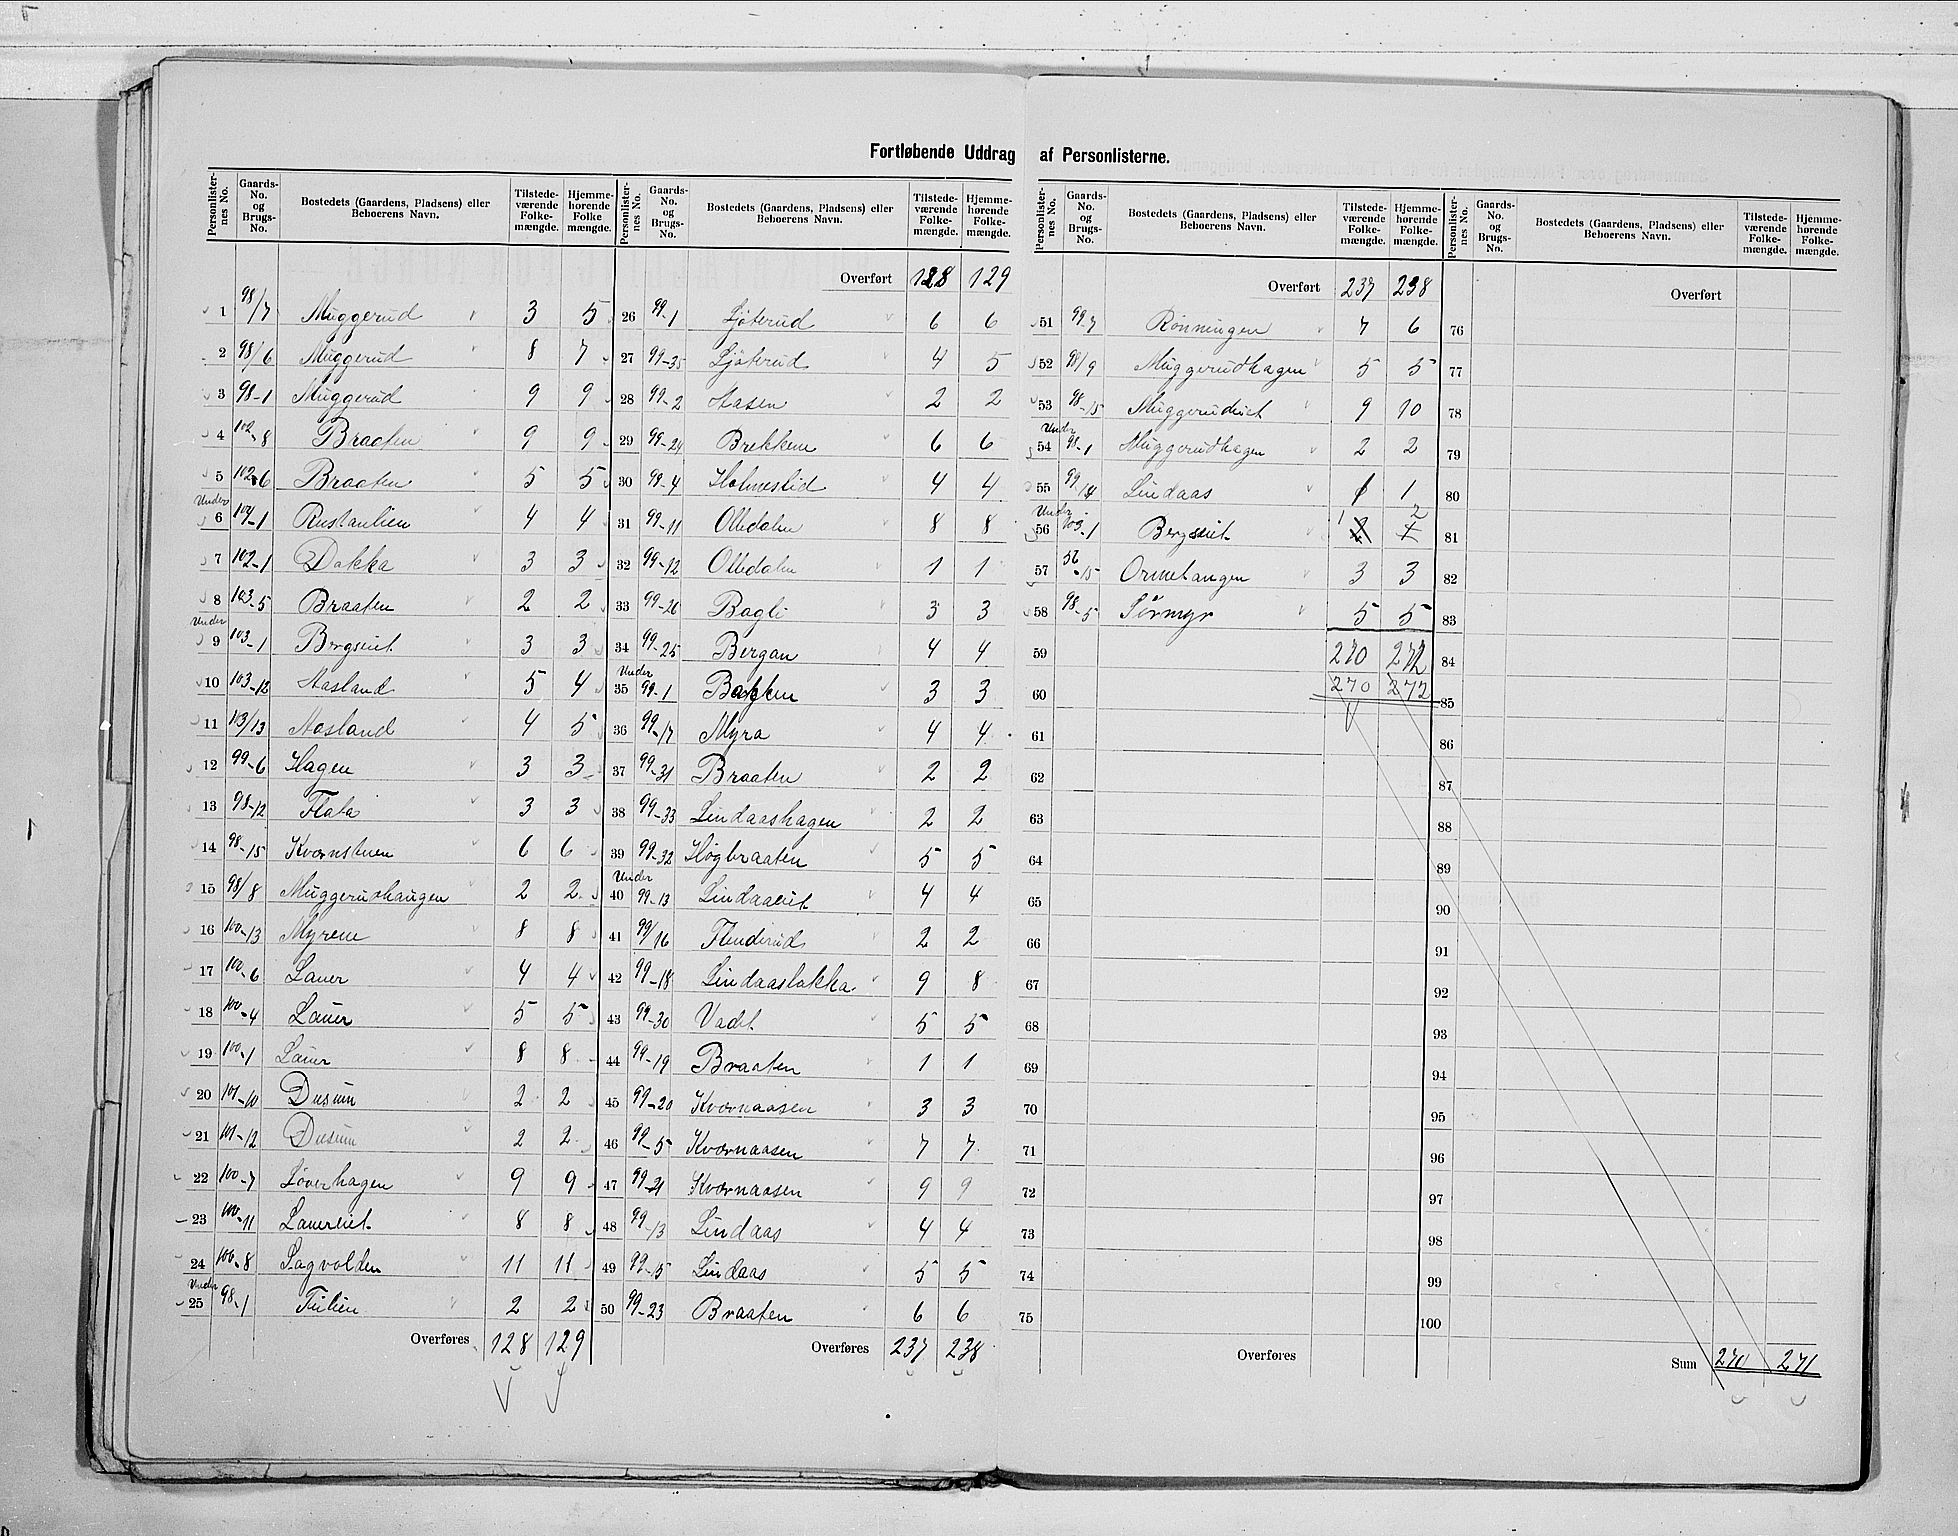 Fortløbende Uddrag af Personlisterne.
Personlister-nes No. Gaards-No. og Brugs-No. Bostedets (Gaardens, Pladsens) eller Beboerens Navn. Tilstede-værende Folke-mængde. Hjemme-hørende Folke mængde.
1 98/7 Muggerud 3 5
2 98/6 Muggerud 8 7
3 98-1 Muggerud 9 9
4 102-8 Braaten 9 9
5 102-6 Braaten 5 5
Under
6 104-1 Rustanlien 4 4
7 102-1 Dokka 3 3
8 103-5 Braaten 2 2
Under
9 103-1 Bergseiet 3 3
10 103-12 Aasland 5 4
11 103/13 Aasland 4 5
12 99-6 Hagen 3 3
13 98-12 Flata 3 3
14 98-15 Kværnstuen 6 6
15 98/8 Muggerudhaugen 2 2
16 100-13 Myrene 8 8
17 100-6 Lauer 4 4
18 100-4 Lauer 5 5
19 100-1 Lauer 8 8
20 101-10 Dusum 2 2
21 101-12 Dusum 2 2
22 100-7 Løverhagen 9 9
23 100-11 Lauereiet 8 8
24 100-8 Sagvolden 11 11
Under
25 98-1 2 2
Overføres 128 129
Personlister-nes No. Gaards-No. og Brugs-No. Bostedets (Gaardens, Pladsens) eller Beboerens Navn. Tilstede-værende Folke-mængde. Hjemme-hørende Folke-mængde.
Overført 128 129
26 99-1 Ljøterud 6 6
27 99-35 Ljøterud 4 5
28 99-2 Aasen 2 2
29 99-24 Brekken 6 6
30 99-4 Holmestid 4 4
31 99-11 Olledalen 8 8
32 99-12 Olledalen 1 1
33 99-26 Bagli 3 3
34 99-25 Bergan 4 4
Under
35 99-1 Bakken 3 3
36 99-17 Myra 4 4
37 99-31 Braaten 2 2
38 99-33 Lindaashagen 2 2
39 99-32 Høgbraaten 5 5
Under
40 99-13 Lindaaseiet 4 4
41 99/16 Flenderud 2 2
42 99-18 Lindaasløkka 9 8
43 99-30 Vadet 5 5
44 99-19 Braaten 1 1
45 99-20 Kværnaasen 3 3
46 99-5 Kværnaasen 7 7
47 99-21 Kværnaasen 9 9
48 99-13 Lindaas 4 4
49 99-15 Lindaas 5 5
50 99-23 Braaten 6 6
Overføres 237 238
Personlister-nes No. Gaards-No. og Brugs-No. Bostedets (Gaardens, Pladsens) eller Beboerens Navn. Tilstede-værende Folke-mængde. Hjemme-hørende Folke-mængde.
Overført 237 238
51 99-7 Rønningen 7 6
52 98/9 Muggerudhagen 5 5
53 98-15 Muggerudeiet 9 10
Under
54 98-1 Muggerudhagen 2 2
55 99-14 Lindaas 1 1
Under
56 103-1 Bergseiet 1 2 2 1
57 56-15 Ormetangen 3 3
58 98-5 Sörmyr 5 5
59 270 272
60 270 272
61
62
63
64
65
66
67
68
69
70
71
72
73
74
75
Overføres
Personlister-nes No. Gaards-No. og Brugs-No. Bostedets (Gaardens, Pladsens) eller Beboerens Navn. Tilstede-værende Folke-mængde. Hjemme-hørende Folke-mængde.
Overført
76
77
78
79
80
81
82
83
84
85
86
87
88
89
90
91
92
93
94
95
96
97
98
99
100
Sum 270 271